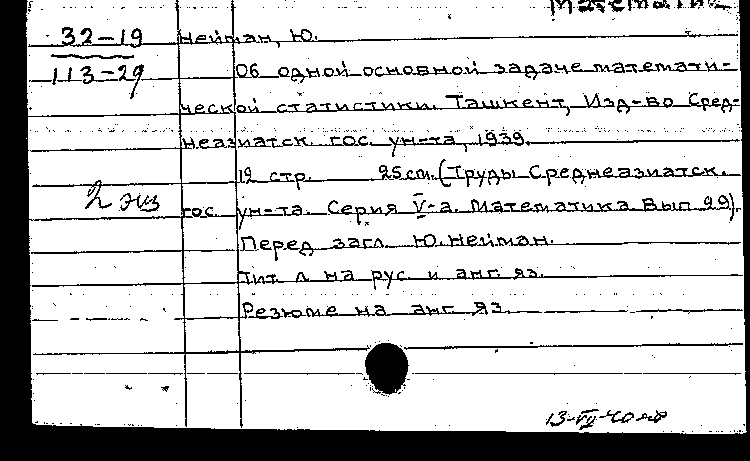 Математика
32-19 Нейман, Ю.
113-29 Об одной основной задаче математи-
ческой статистики. Ташкент, Изд-во Сред-
неазиатск. гос. ун-та, 1939.
12 стр. 25 см. (Труды Среднеазиатск.
2 экз гос. ун-та. Серия V-а. Математика Вып. 29).
Перед загл. Ю. Нейман.
Тит. л на рус. и анг. яз.
Резюме на анг. яз.
13-VII-40